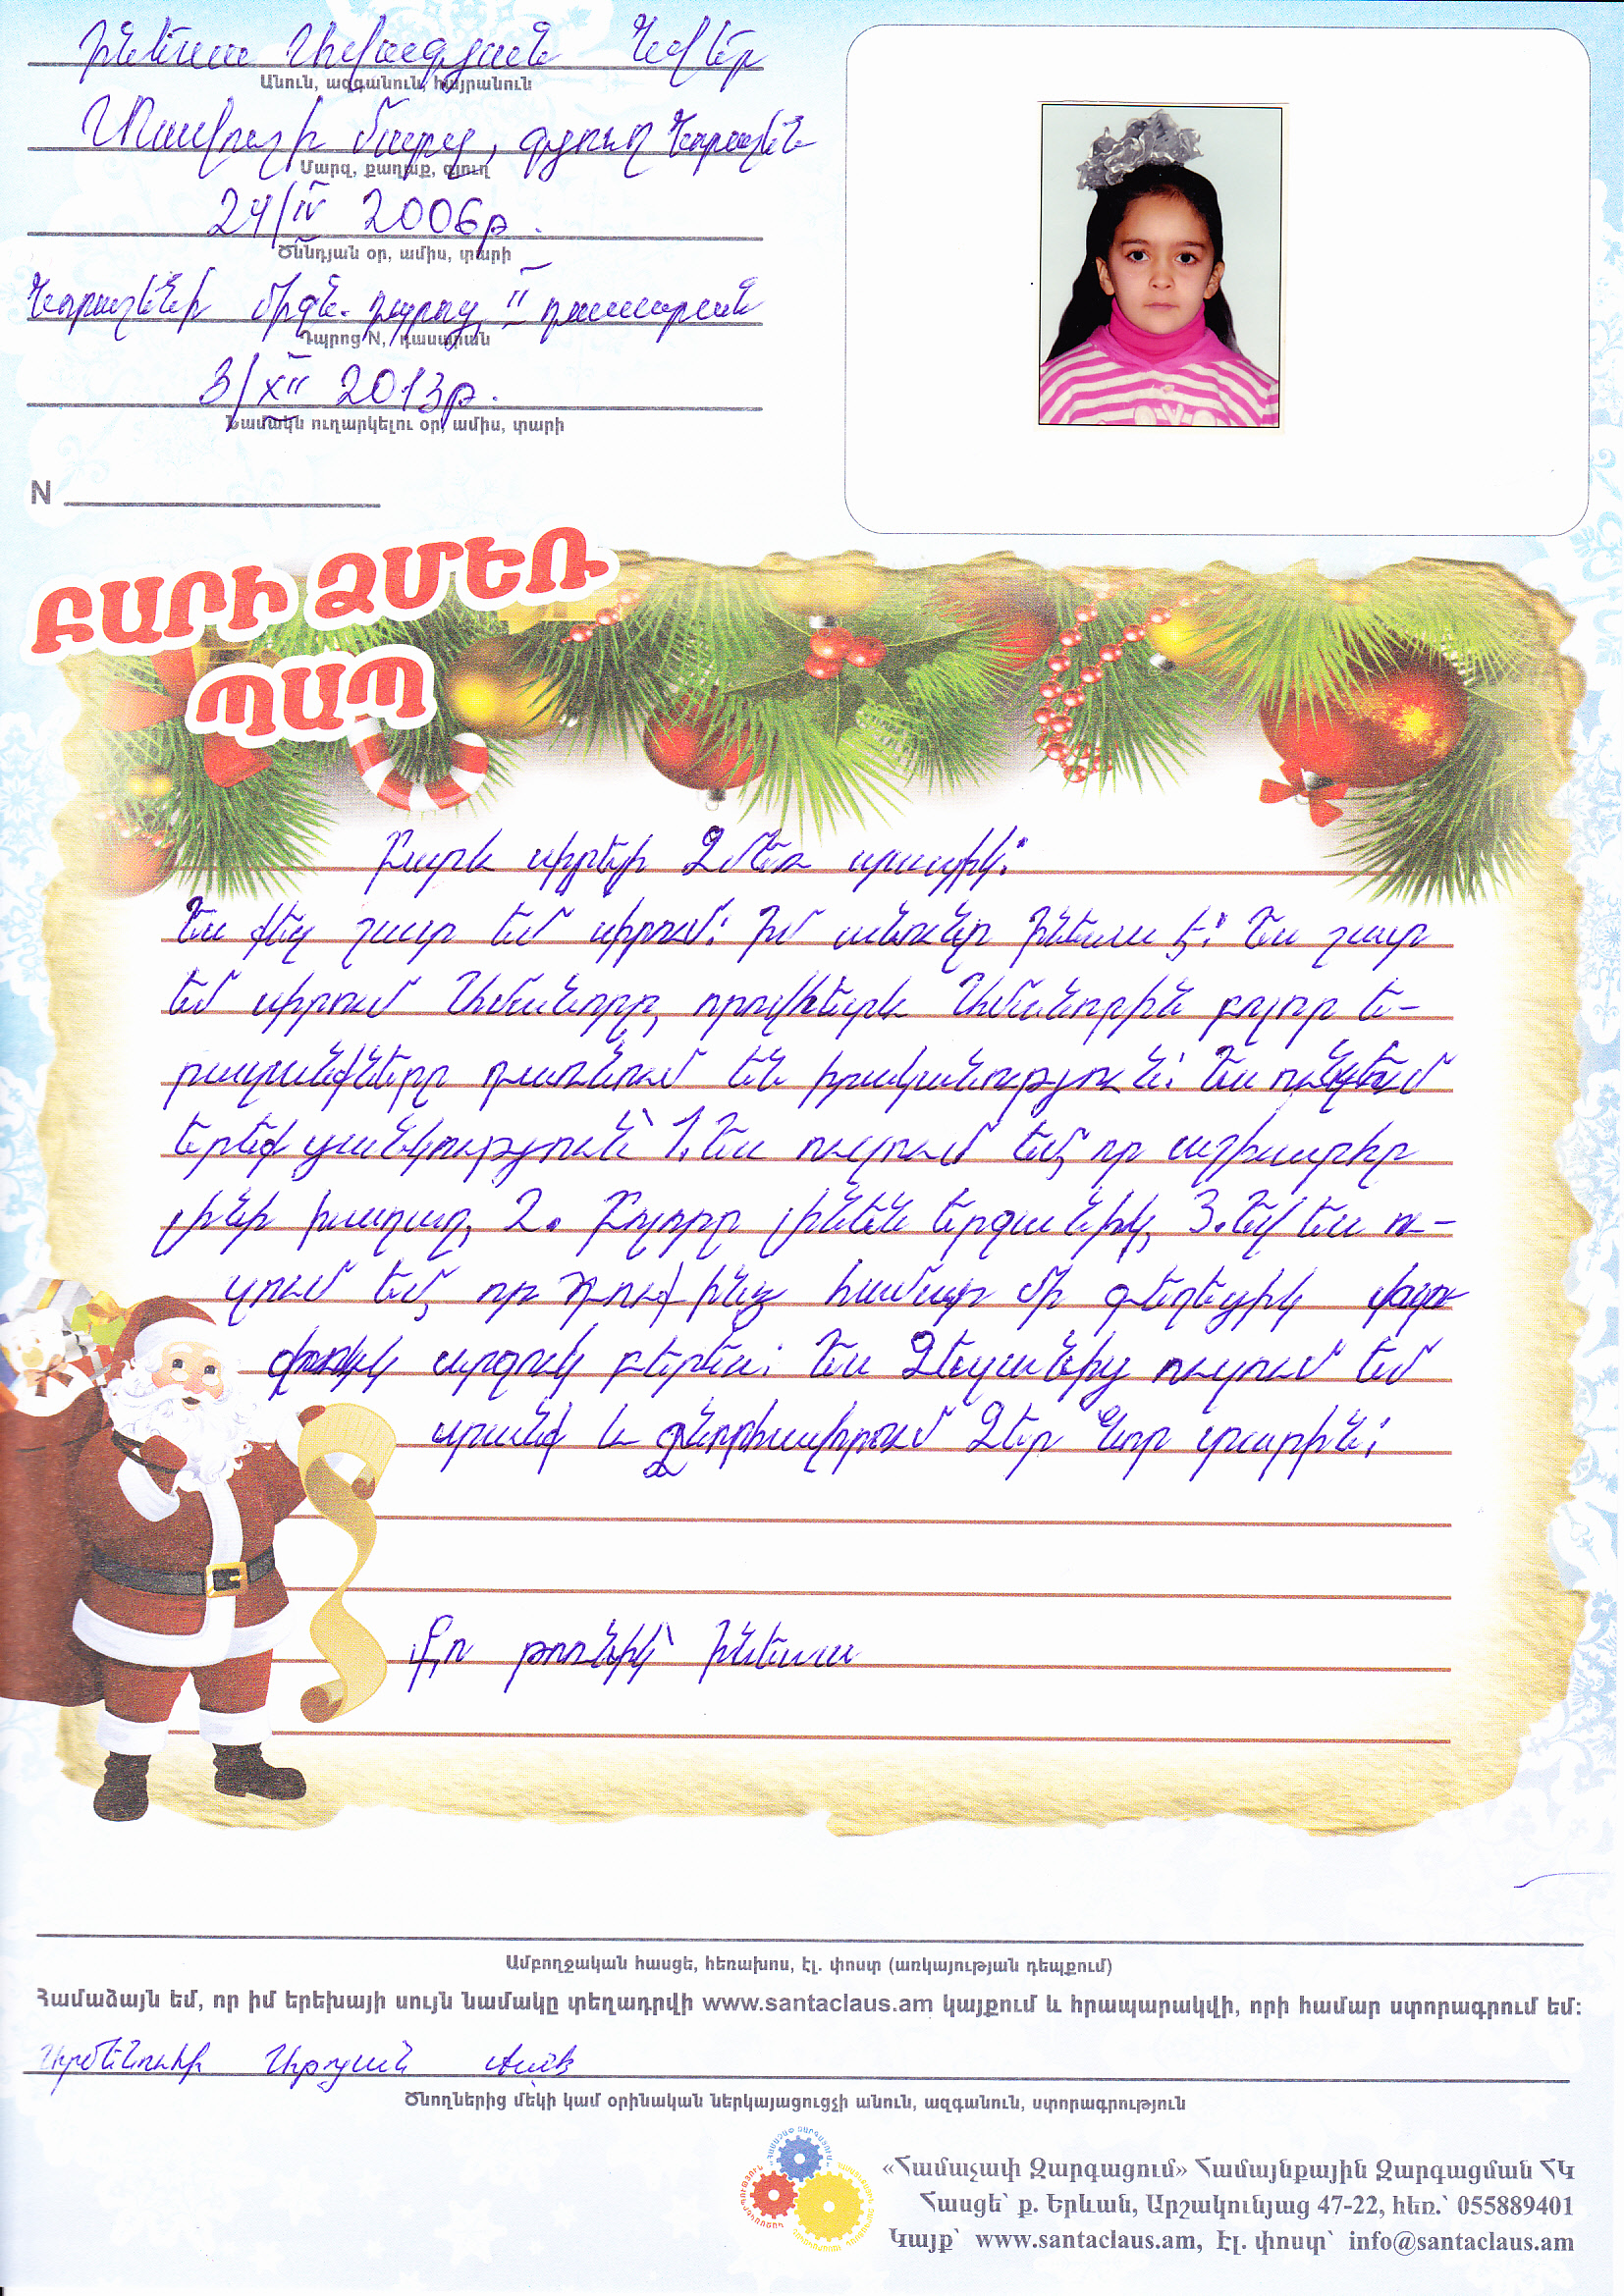 Ինեսա Ավագյան Նվեր
Անուն, ազգանուն, հայրանուն
մարզ, գյուղ Նորաշեն
Մարզ, քաղաք, գյուղ
24/IV 2006թ.
Ծննդյան օր, ամիս, տարի
Նորաշենի միջն. դպրոց II դասարան
Դպրոց N, դասարան
3/XII 2013թ.
Նամակն ուղարկելու օր, ամիս, տարի
N
ԲԱՐԻ ՁՄԵՌ
ՊԱՊ
Բարև սիրելի Ձմեռ պապիկ:
Ես քեզ շատ եմ սիրում: Իմ անունը Ինեսա է: Ես շատ
եմ սիրում Ամանորը, որովհետև Ամանորին բոլոր ե-
րազանքները դառնում են իրականություն: Ես ունեմ
երեք ցանկություն՝ 1. Ես ուզում եմ, որ աշխարհը
լինի խաղաղ, 2. Բոլորը լինեն երջանիկ, 3. Եվ ես ու-
զում եմ, որ Դուք ինձ համար մի գեղեցիկ
արջուկ բերեք: Ես Ձեզանից ուզում եմ
սրանք և շնորհավորում Ձեր Նոր տարին:
Քո թոռնիկ՝ Ինեսա
Ամբողջական հասցե, հեռախոս, էլ. փոստ (առկայության դեպքում)
Համաձայն եմ, որ իմ երեխայի սույն նամակը տեղադրվի www.santaclaus.am կայքում և հրապարակվի, որի համար ստորագրում եմ:
Արմենուհի
Ծնողներից մեկի կամ օրինական ներկայացուցչի անուն, ազգանուն, ստորագրություն
«Համաչափ Զարգացում» Համայնքային Զարգացման ՀԿ
Հասցե՝ ք. Երևան, Արշակունյաց 47-22, հեռ.՝ 055889401
Կայք՝ www.santaclaus.am, էլ. փոստ՝ info@santaclaus.am